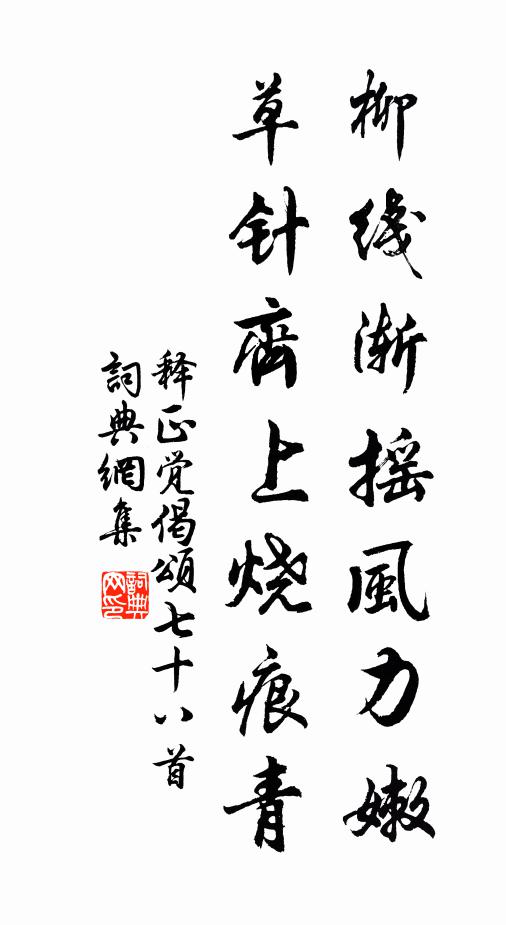 柳线渐摇風力嫩
草针齊上烧痕青
释正觉偈頌七十八首
詞典網集
詞典网印